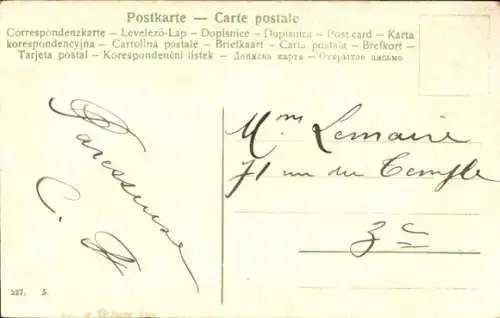 Postkarte — Carte postale
Correspondenzkarte — Levelező-Lap — Dopisnice — Dopisnica — Post card — Karta
korespondencyjna — Cartolina postale — Briefkaart — Carta postala — Brefkort —
Tarjeta postal — Korespondenční lístek — Дописна карта — Открытое письмо
Paresseuse
C.
Mme Lemaire
71 rue du Temple
3e
327. 5.